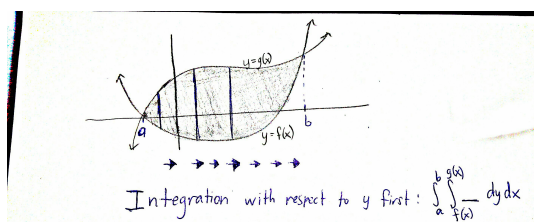 y=g(x)
a
b
y=f(x)
Integration with respect to y first: ∫_a^b ∫_{f(x)}^{g(x)} __ dy dx